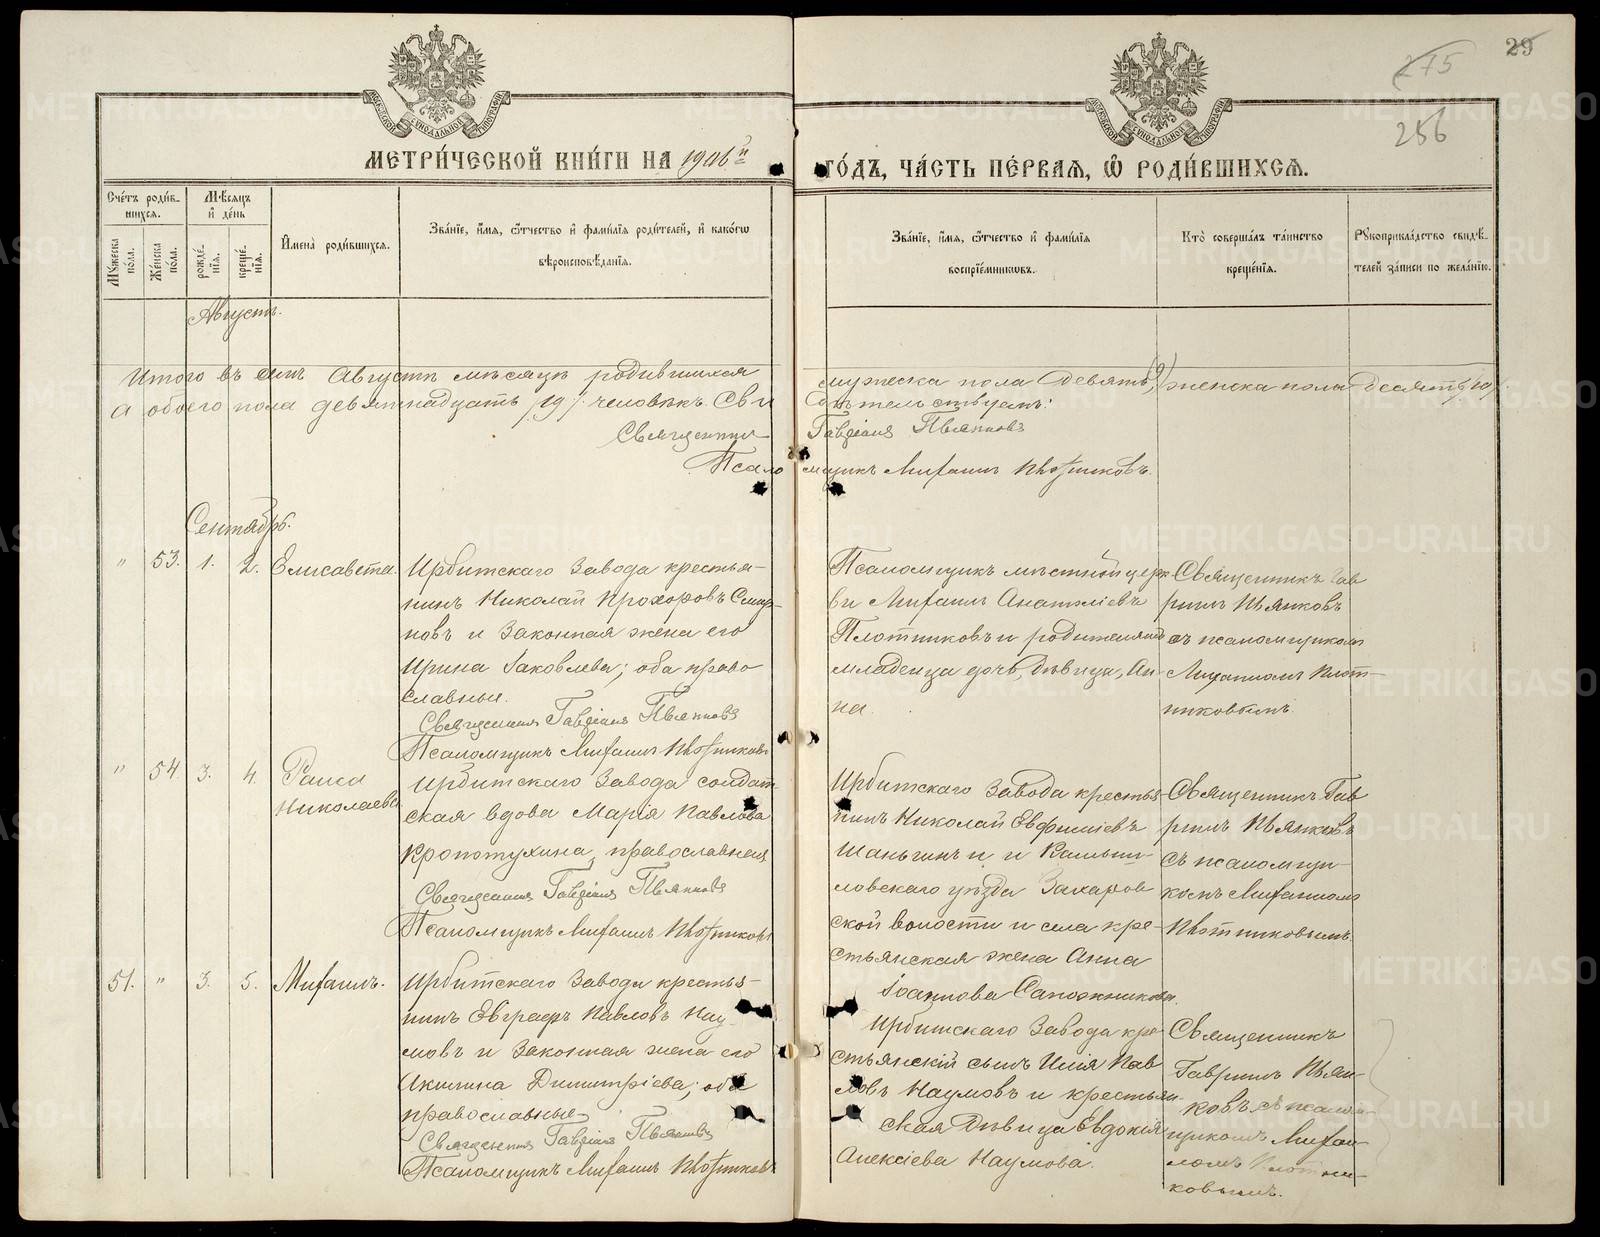 29
275
256
МЕТРИ́ЧЕСКОЙ КНИ́ГИ НА 1906й
ГО́ДЪ, ЧА́СТЬ ПЕ́РВАЯ, Ѿ РОДИ́ВШИХСЯ.
Сче́тъ роди́в-
шихся.
Мѣ́сяцъ
и́ де́нь
Мꙋ́жеска по́ла.
Же́нска по́ла.
рожде́-
нїя.
креще́-
нїя.
И҆мена̀ роди́вшихся.
Зва́нїе, и҆́мя, ѻ҆́тчество и҆ фами́лїя роди́телей, и҆ како́гѡ
вѣроисповѣ́данїя.
Зва́нїе, и҆́мя, ѻ҆́тчество и҆ фами́лїя
воспрїе́мникѡвъ.
Кто̀ соверша́лъ та́инство
креще́нїя.
Рꙋкоприкла́дство свидѣ́-
телей за́писи по жела́нїю.
Августъ.
Итого въ семъ Августѣ мѣсяцѣ родившихся мужеска пола девять (9) женска пола десять /10/.
а обоего пола девятнадцать /19/. человѣкъ. Сви дѣтельствуемъ:
Священник Гавріилъ Пьянковъ
Псало мщикъ Михаилъ Плотниковъ.
Сентябрь.
" 53. 1. 2. Елисавета.
Ирбитскаго Завода крестья-
нинъ Николай Прохоровъ Смир-
новъ и Законная жена его
Ирина Іаковлева; оба право
славные.
Священникъ Гавріилъ Пьянковъ
Псаломщикъ Михаилъ Плотниковъ
Псаломщикъ мѣстной церк
ви Михаилъ Анатоліевъ
Плотниковъ и родителей
младенца дочь, дѣвица, Ан-
на.
Священникъ Гав
ріилъ Пьянковъ
съ псаломщикомъ
Михаиломъ Плот-
никовымъ.
" 54. 3. 4. Раиса
Николаева
Ирбитскаго Завода солдат
ская вдова Марія Павлова
Кропотухина, православная
Священникъ Гавріилъ Пьянковъ
Псаломщикъ Михаилъ Плотниковъ
Ирбитскаго Завода крестья
нинъ Николай Евфиміевъ
Шаньгинъ и Камыш-
ловскаго уѣзда Захаров
ской волости и села кре-
стьянская жена Анна
Іоаннова Сапожникова.
Священникъ Гав
ріилъ Пьянковъ
съ псаломщи-
комъ Михаиломъ
Плотниковымъ.
51. " 3. 5. Михаилъ.
Ирбитскаго Завода крестья-
нинъ Евграфъ Павловъ Нау-
мовъ и Законная жена его
Акилина Димитріева; оба
православные
Священникъ Гавріилъ Пьянковъ
Псаломщикъ Михаилъ Плотниковъ
Ирбитскаго Завода кре-
стьянскій сынъ Илія Пав
ловъ Наумовъ и крестьян-
ская Дѣвица Евдокія
Алексіева Наумова.
Священникъ
Гавріилъ Пьян-
ковъ съ псалом-
щикомъ Михаи-
ломъ Плотни-
ковымъ.
METRIKI.GASO-URAL.RU